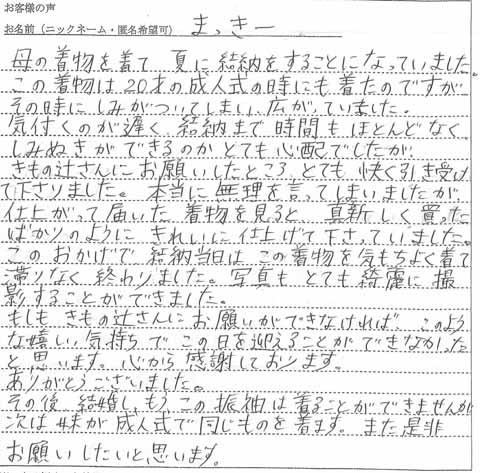 お客様の声
お名前（ニックネーム・匿名希望可） まっきー
母の着物を着て 夏に結納をすることになっていました。
この着物は20才の成人式の時にも着たのですが
その時にしみがついてしまい 広がっていました。
気付くのが遅く 結納まで時間もほとんどなく
しみぬきができるのかとても心配でしたが、
きもの辻さんにお願いしたところ、とても快く引き受け
て下さりました。本当に無理を言ってしまいましたが
仕上がって届いた着物を見ると 真新しく買った
ばかりのようにきれいに仕上げて下さっていました。
このおかげで結納当日は この着物を気もちよく着て
滞りなく終わりました。写真もとても綺麗に撮
影することができました。
もしもきもの辻さんにお願いができなければ、このよう
な嬉しい気持ちでこの日を迎えることができなかった
と思います。心から感謝しております。
ありがとうございました。
その後 結婚し もうこの振袖は着ることができませんが
次は妹が成人式で同じものを着ます。また是非
お願いしたいと思います。